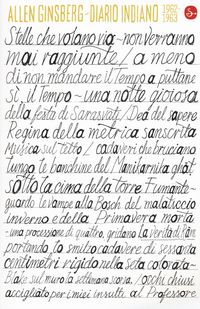 ALLEN GINSBERG - DIARIO INDIANO 1962 1963
Stelle che volano via - non verranno
mai raggiunte / a meno
di non mandare il Tempo a puttane
sì, il Tempo - una notte gioiosa
della festa di Sarasvati / Dea del sapere
Regina della metrica sanscrita
Musica sul tetto / cadaveri che bruciano
lungo le banchine del Manikarnika ghat
sotto la cima della torre Fumante
quando le vampe alla Bosch del malaticcio
inverno e della Primavera morta
una processione di quattro, gridano la verità di Ram
portando lo smilzo cadavere di sessanta
centimetri rigido nella seta colorata -
Blake sul muro la settimana scorsa, / occhi chiusi
accigliato per i miei insulti al Professore